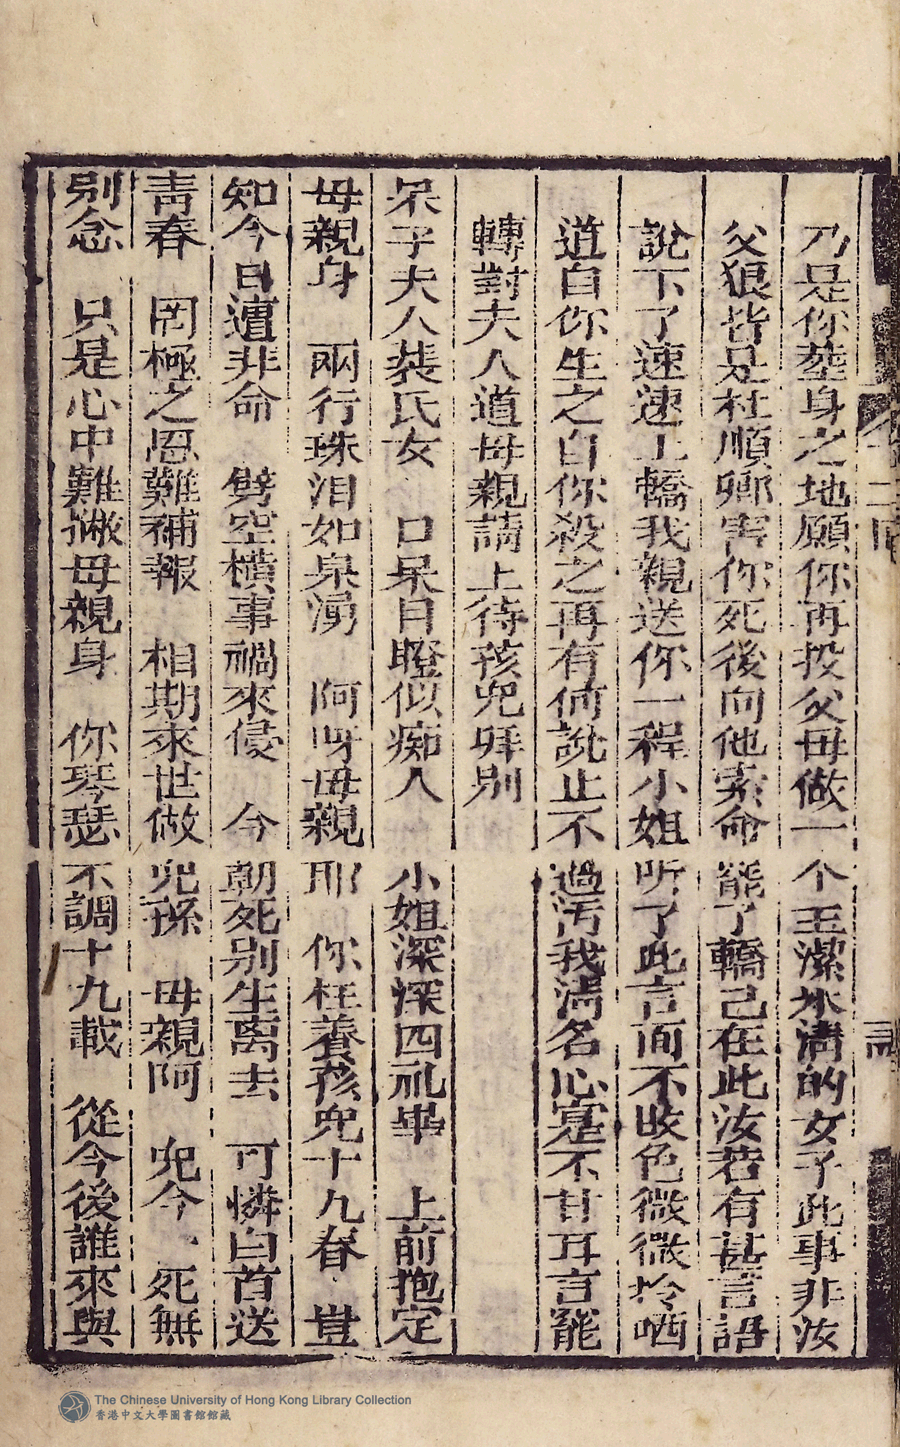 乃是你塟身之地願你再投父母做一个玉潔氷清的女子此事非汝
父狠皆是杜順卿害你死後向他索命罷了轎已在此汝若有甚言語
說下了速速上轎我親送你一程小姐听了此言面不改色微微冷哂
道自你生之自你殺之再有何說止不過汚我淸名心寔不甘耳言罷
轉對夫人道母親請上待孩兒拜别
呆子夫人裴氏女 口呆目瞪似痴人 小姐深深四礼畢 上前抱定
母親身 兩行珠泪如泉湧 阿呀母親耶 你枉養孩兒十九春 豈
知今日遭非命 劈空橫事禍來侵 今朝死别生离去 可憐白首送
靑春 罔極之恩難補報 相期來世做兒孫 母親阿 兒今一死無
别念 只是心中難撇母親身 你琴瑟不調十九載 從今後誰來與
The Chinese University of Hong Kong Library Collection
香港中文大學圖書館館藏